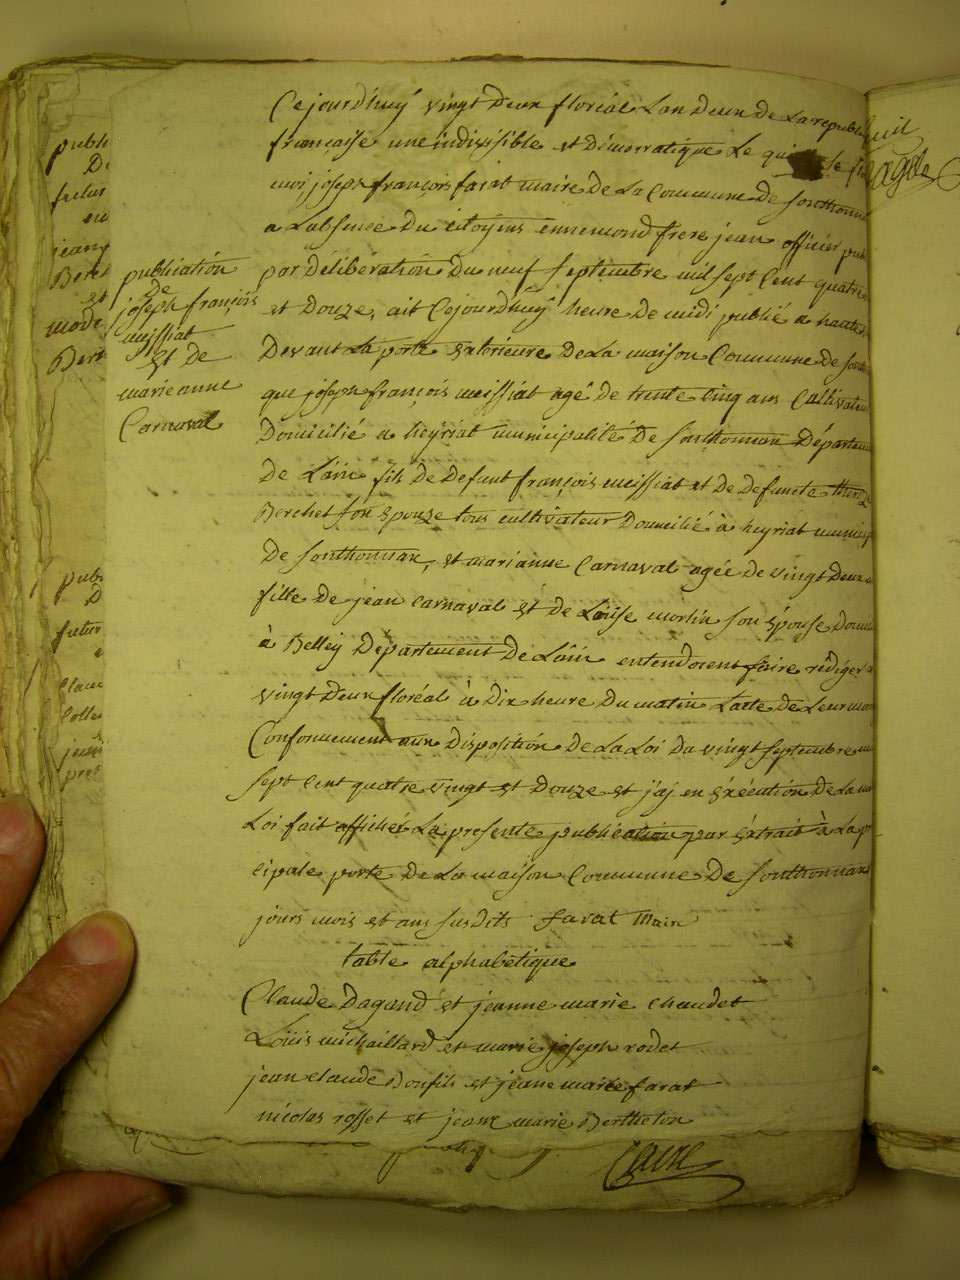 publication
de
joseph françois
meissiat
et de
marie anne
Carnaval
Cejourd'huÿ vingt deux floréal Lan deux de La republi
française une indivisible et démocratique Le
moi joseph françois favat maire de La Commune de Sonthonna
a Labsence du citoÿens ennemond frere jean officier publ
par délibération du neuf septembre mil sept cent quatre
et Douze, ait Cejourd'huÿ heure de midi publié a haute
Devant La porte extérieure de La maison Commune de Sont
que joseph françois meissiat agé de trente cinq ans Cultivateu
Domicilié a heÿriat municipalité de Sonthonnax Départem
de Lain fils de defunt françois meissiat et de defuncte
Berchet son epouze tous cultivateur Domicilié à heÿriat municip
de Sonthonnax, et marianne Carnaval agée de vingt deux a
fille de jean carnaval et de Loüise morlin son épouse Domi
à Belley Département de Lain entendoient faire rédiger
vingt deux floréal à dix heure du matin Lacte de Leur mar
Conformement aux disposition de La Loi du vingt septembre
sept cent quatre vingt et Douze et j'aj en éxécution de La
Loi fait afficher La presente publication par éxtrait à La p
cipale porte de La maison Commune de Sonthonnax
jours mois et ans susdits favat Mair
table alphabétique
Claude Dagand et jeanne marie chaudet
Loüis michaillard et marie joseph rodet
jean claude Bonfils et jeane marie favat
nicolas rosset et jeane marie Berthelon